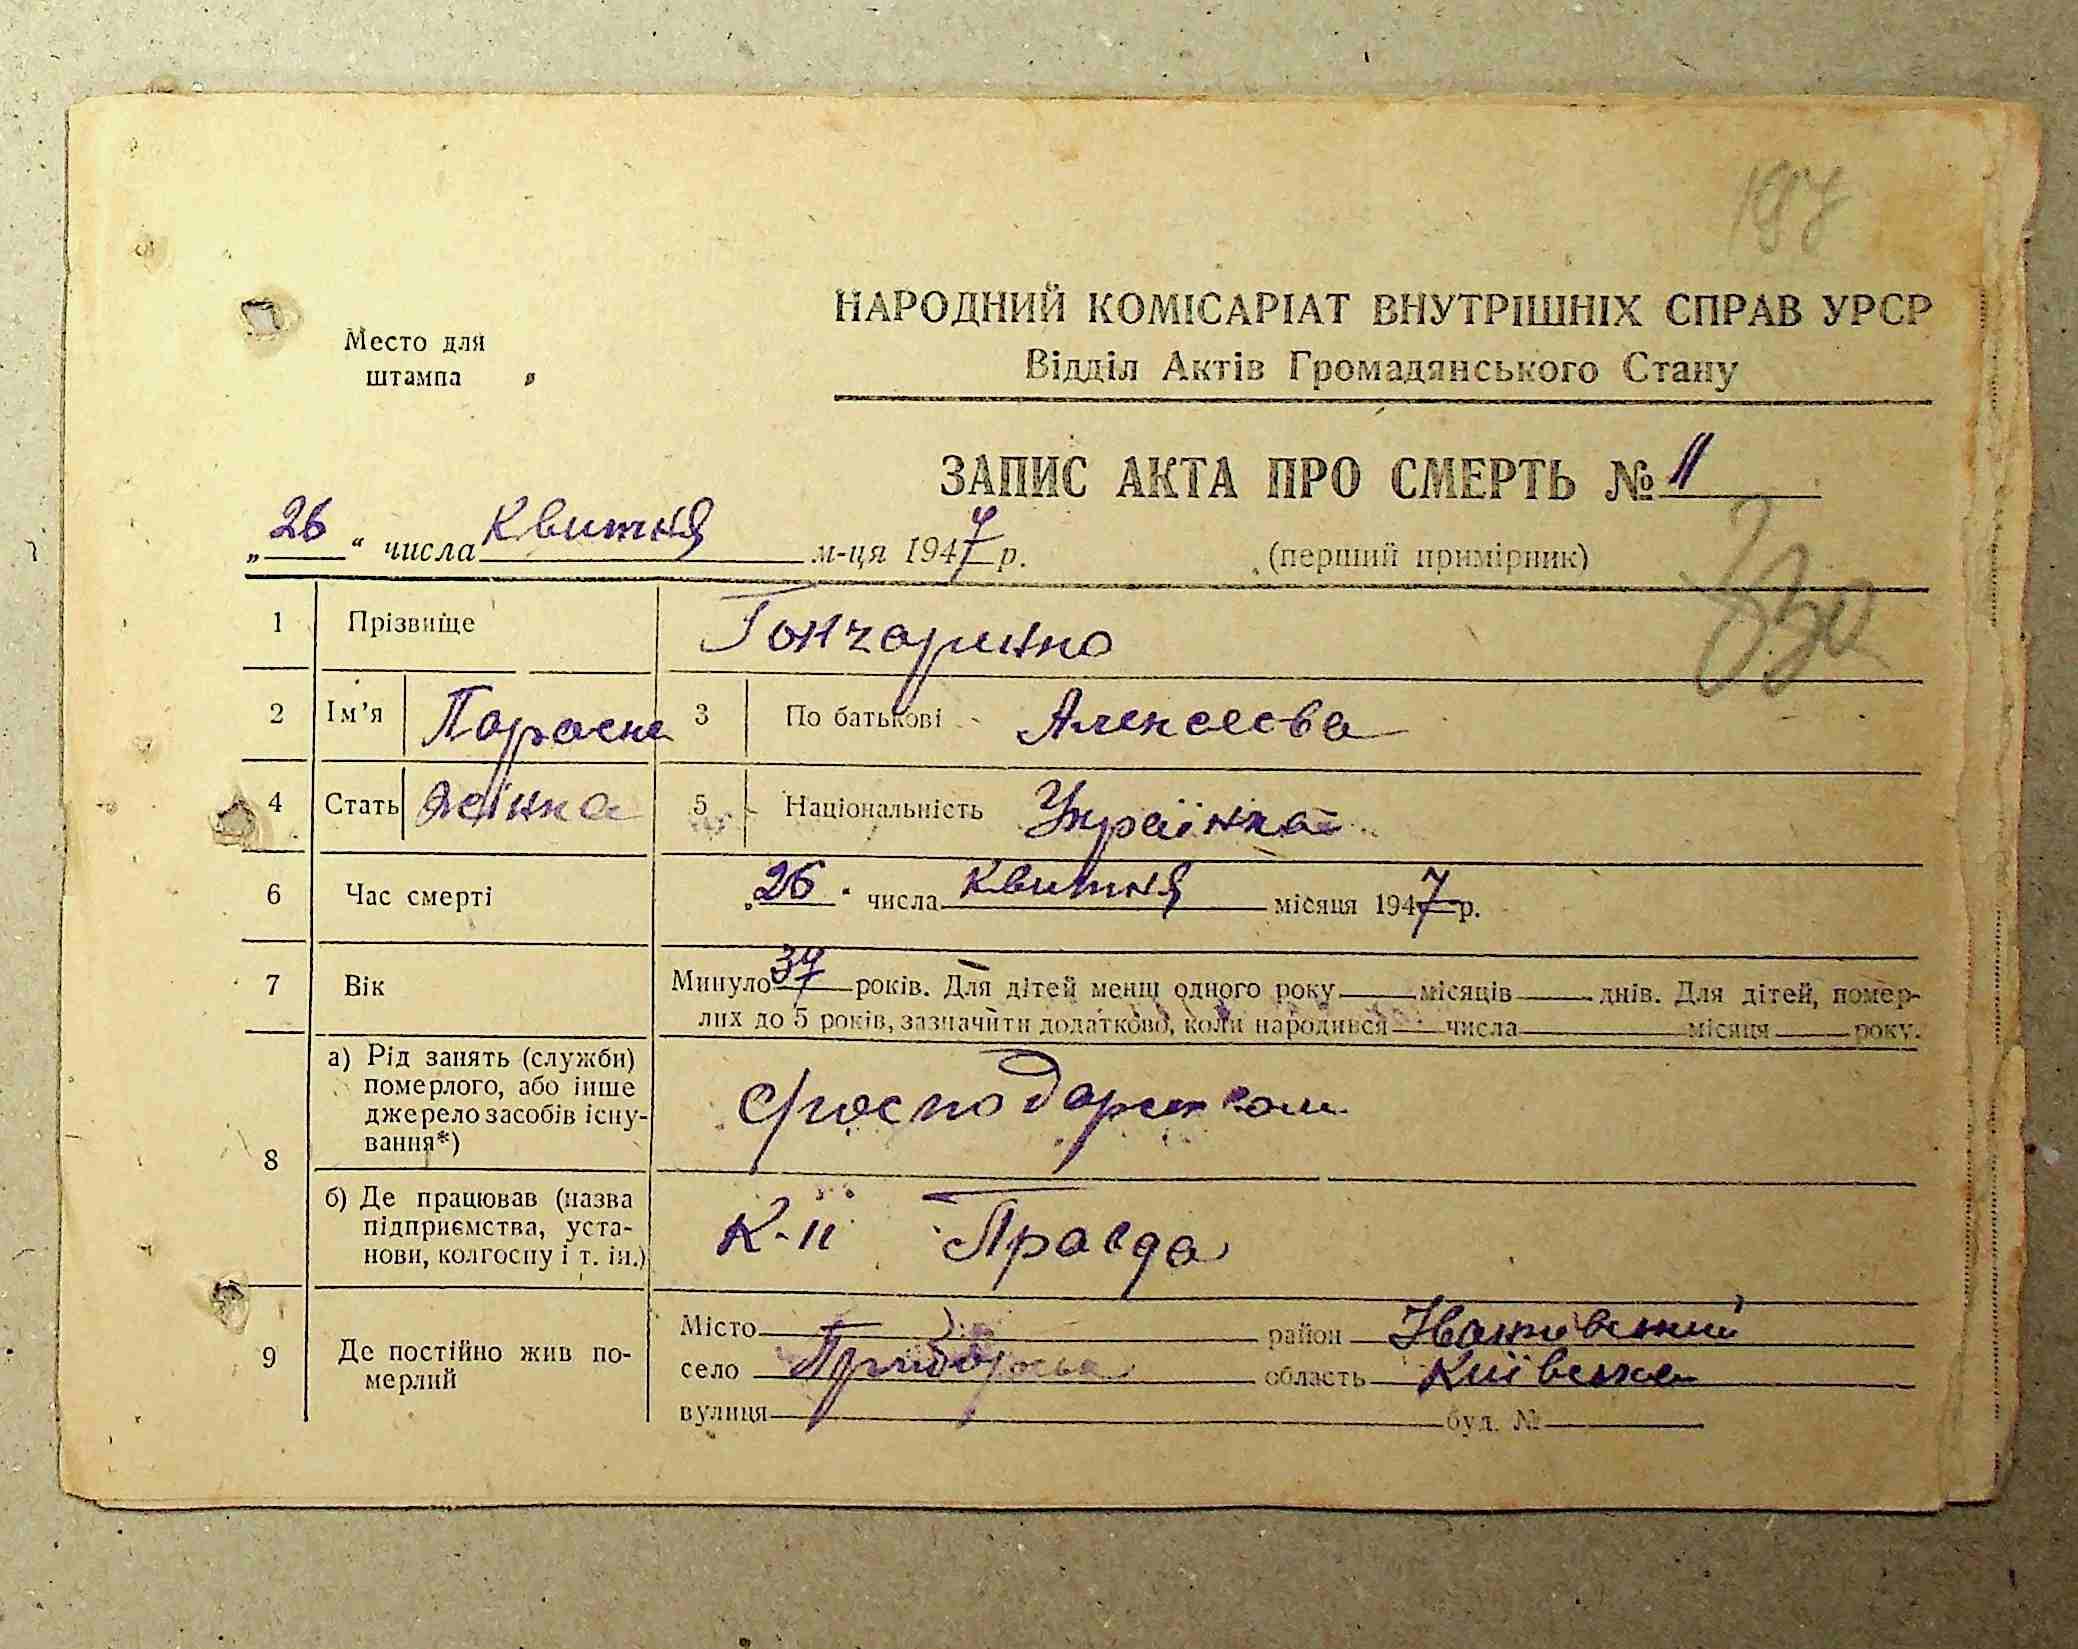 197
НАРОДНИЙ КОМІСАРІАТ ВНУТРІШНІХ СПРАВ УРСР
Место для
штампа
Відділ Актів Громадянського Стану
ЗАПИС АКТА ПРО СМЕРТЬ № 11
„26“ числа Квитня м-ця 1947 р.
(перший примірник)
330
1 Прізвище
2 Ім'я Параска 3 По батькові Алексеева
4 Стать Жінка 5 Національність Українка
6 Час смерті „26“ числа Квитня місяця 1947 р.
7 Вік Минуло 37 років. Для дітей менш одного року місяців днів. Для дітей, помер-
лих до 5 років, зазначити додатково, коли народився числа місяця року.
8 а) Рід занять (служби)
померлого, або інше
джерело засобів існу-
вання*)
б) Де працював (назва
підприємства, уста-
нови, колгоспу і т. ін.)
К-п Правда
9 Де постійно жив по-
мерлий
Місто район
село область Київська
вулиця буд. №